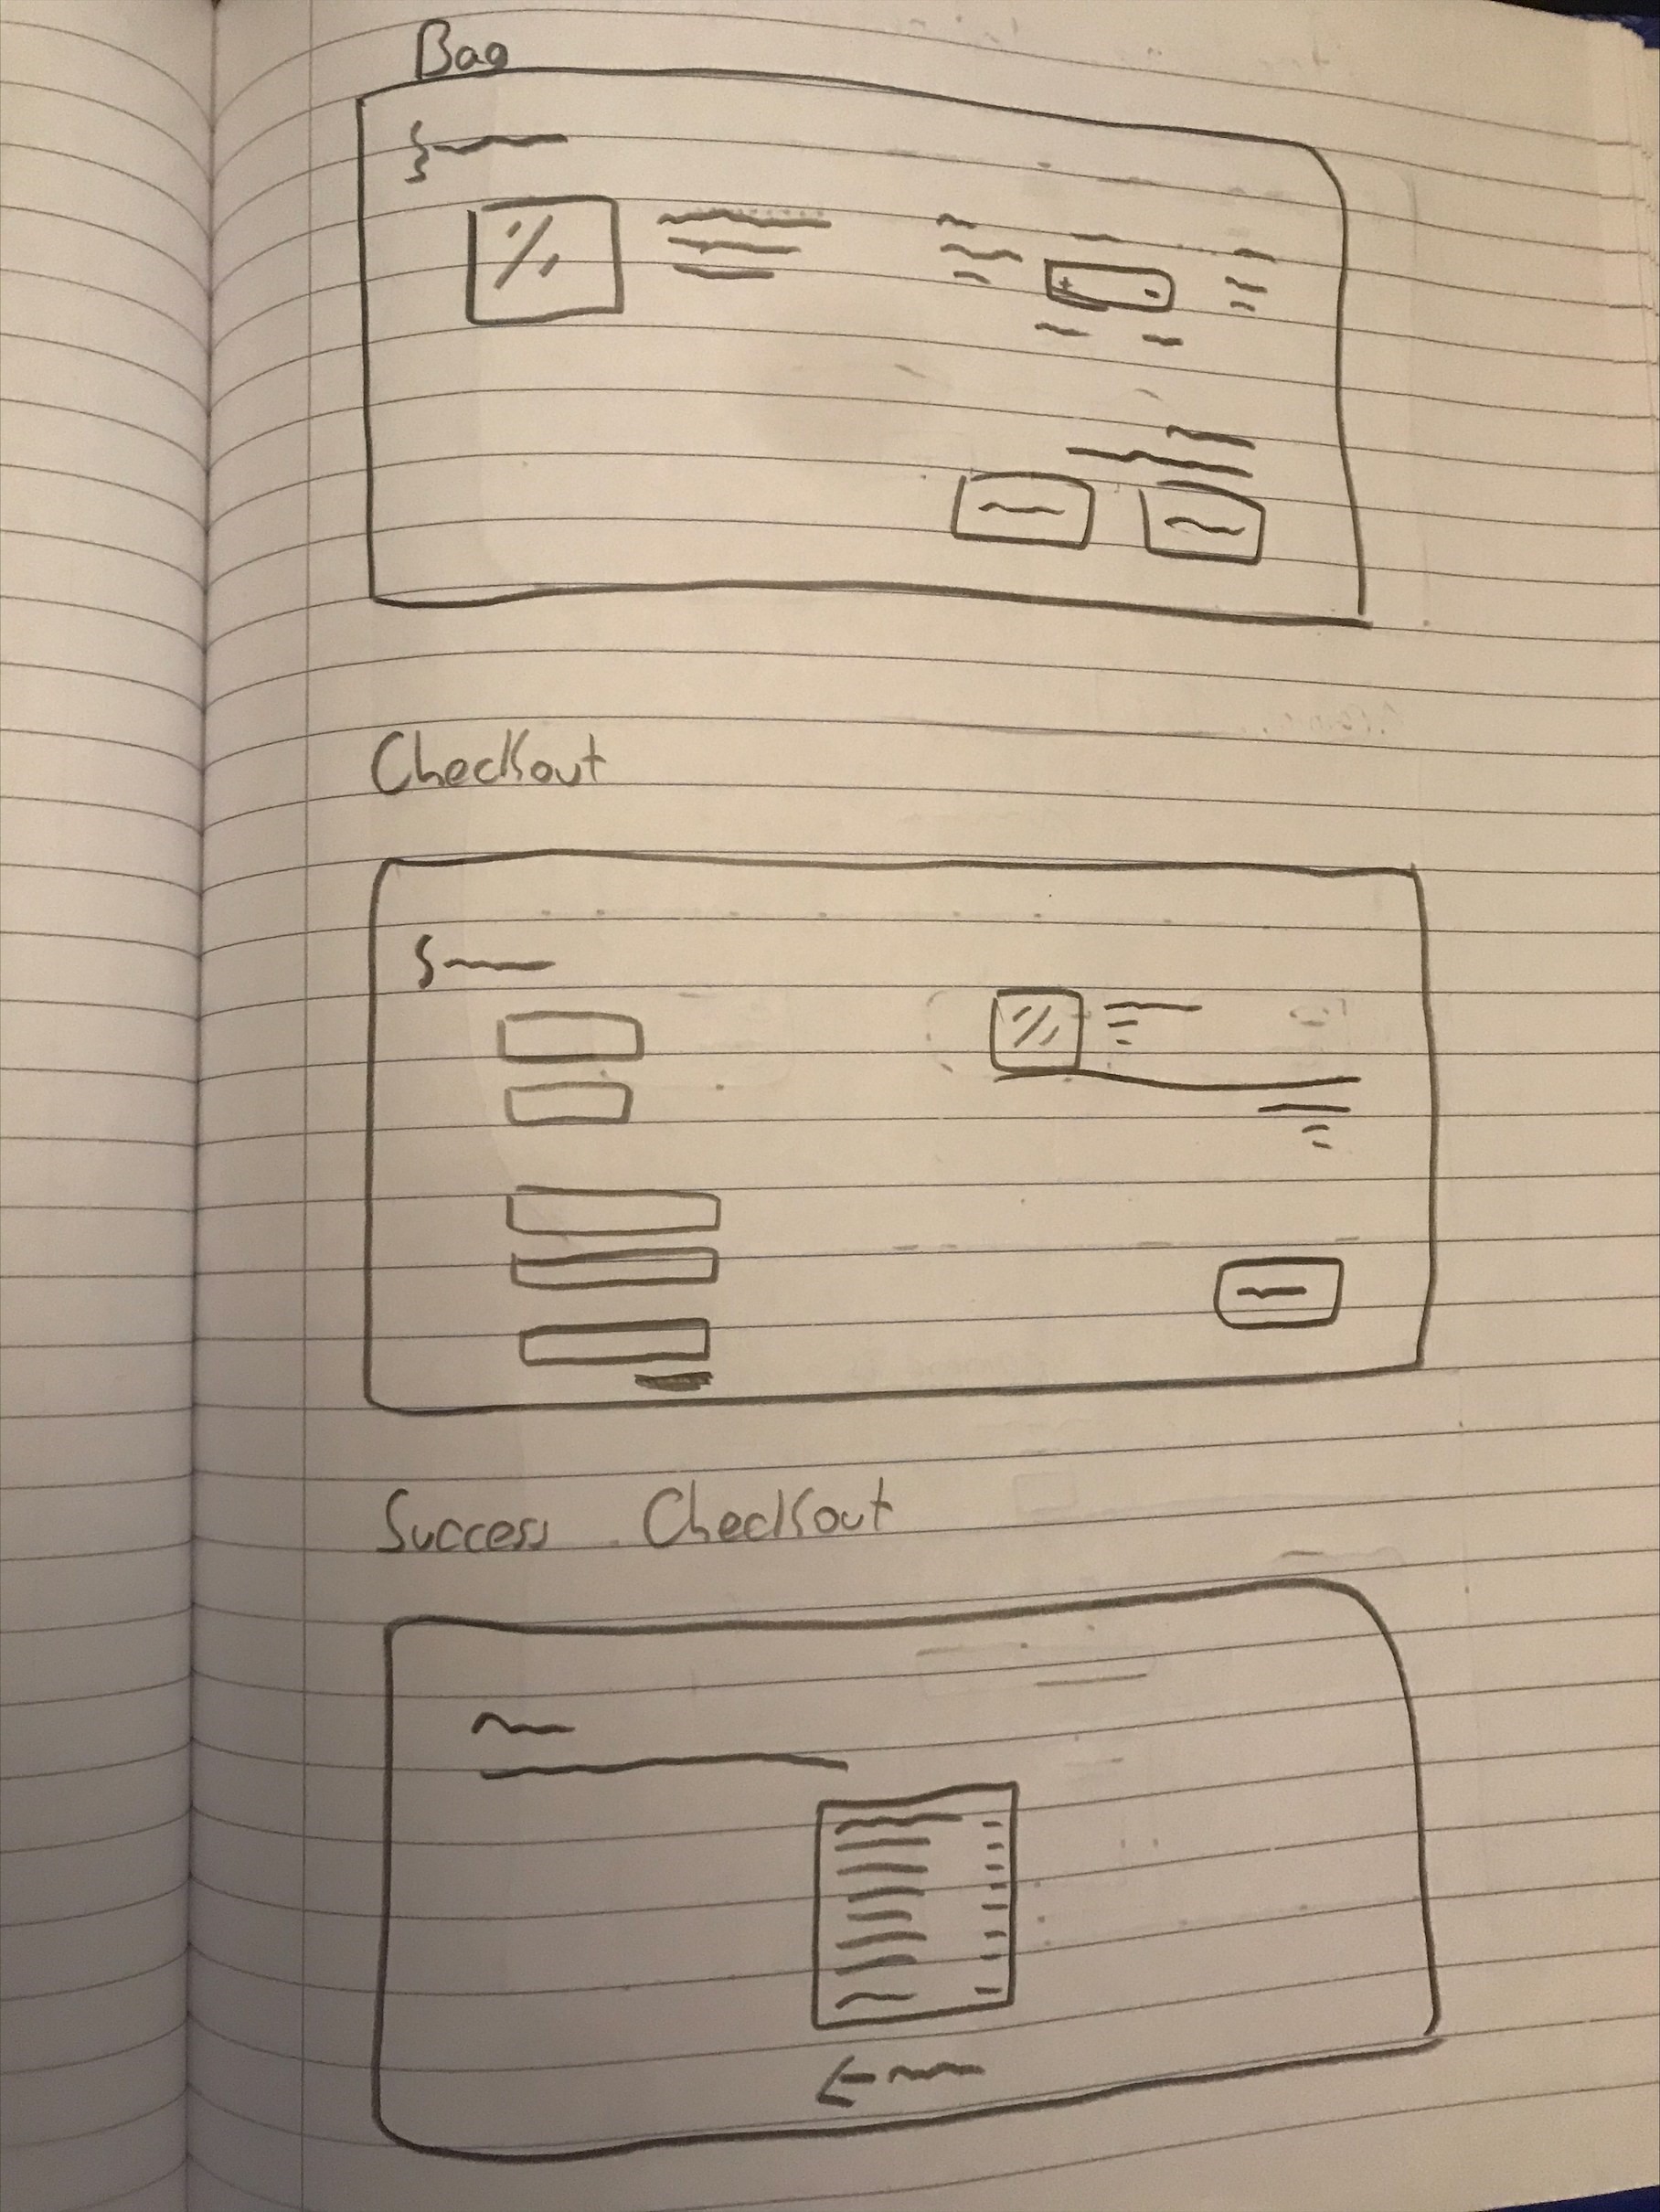 Bag
+ -
Checkout
Success Checkout